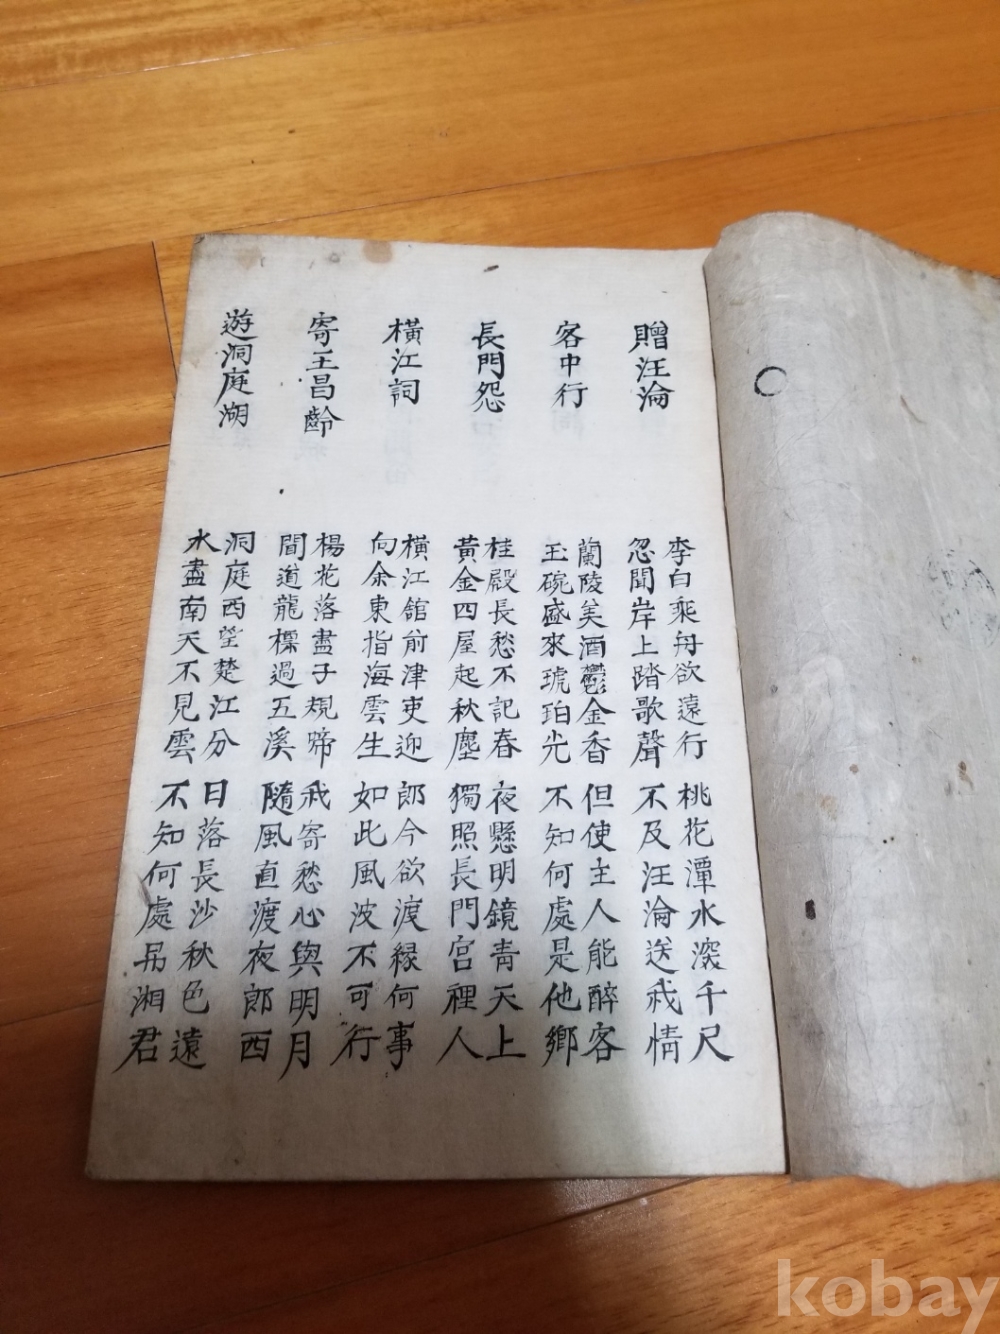 贈汪淪
李白乘舟欲遠行
忽聞岸上踏歌聲
桃花潭水深千尺
不及汪淪送我情
客中行
蘭陵美酒鬱金香
玉碗盛來琥珀光
但使主人能醉客
不知何處是他鄉
長門怨
桂殿長愁不記春
黃金四屋起秋塵
夜懸明鏡青天上
獨照長門宮裡人
橫江詞
橫江館前津吏迎
向余東指海雲生
郎今欲渡緣何事
如此風波不可行
寄王昌齡
楊花落盡子規啼
聞道龍標過五溪
我寄愁心與明月
隨風直渡夜郎西
遊洞庭湖
洞庭西望楚江分
水盡南天不見雲
日落長沙秋色遠
不知何處吊湘君
kobay